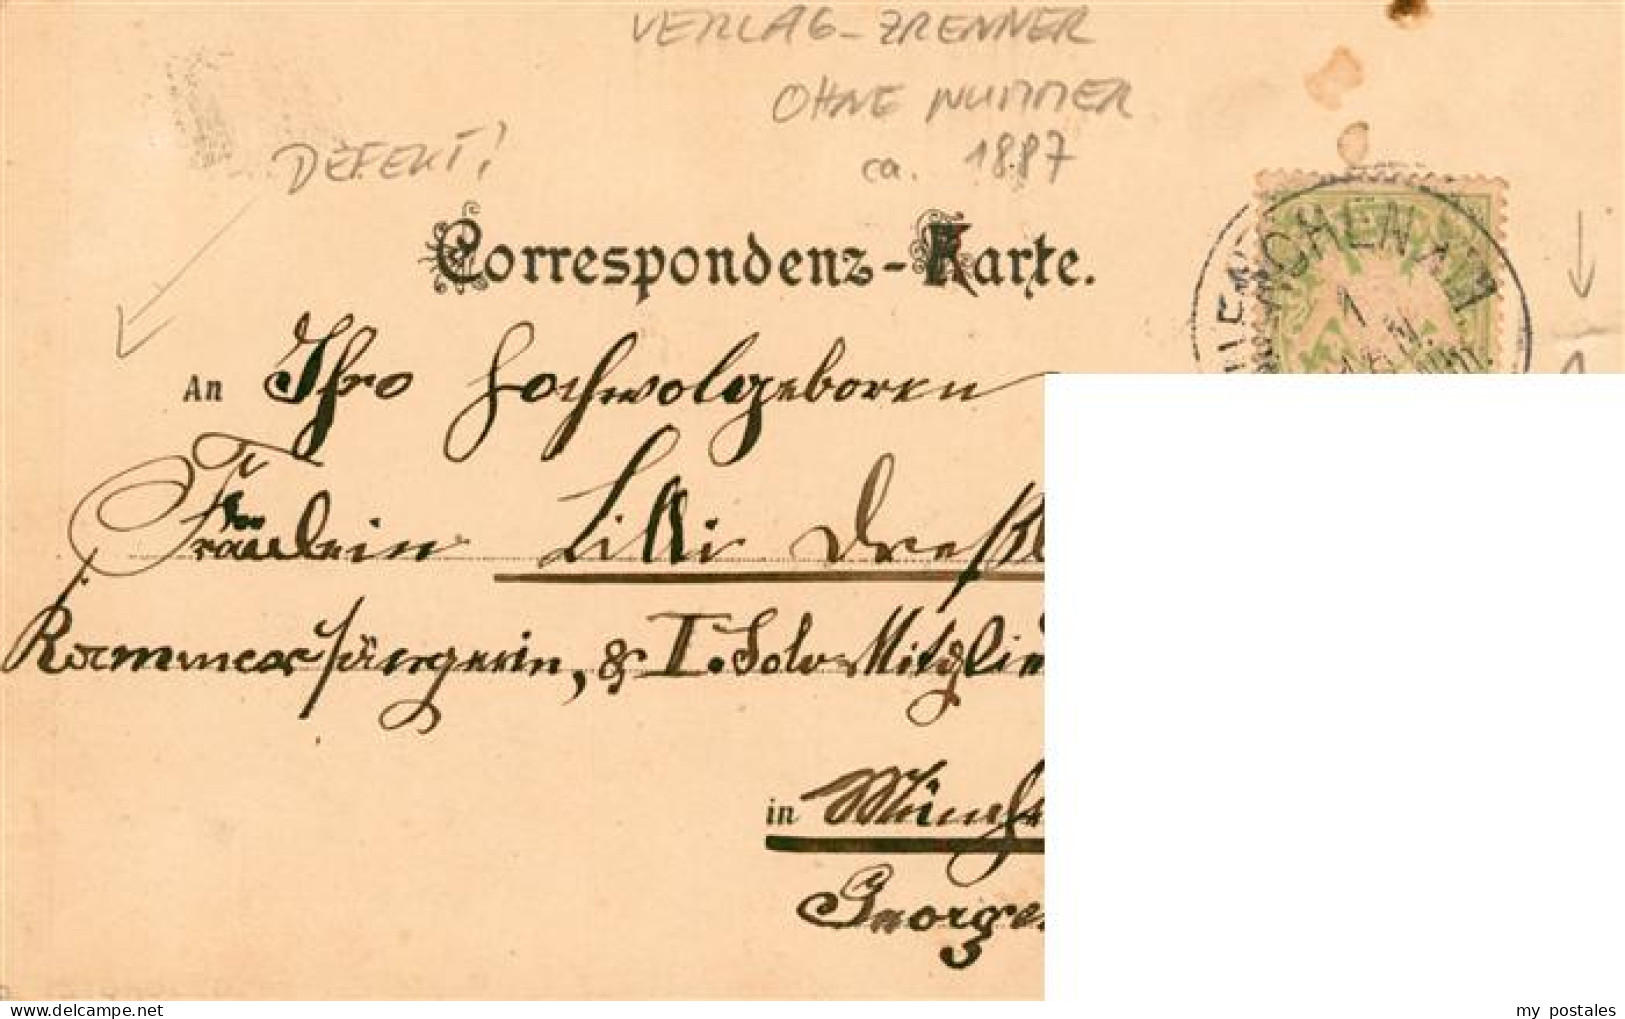 VERLAG - ZRENNER
OHNE NUMMER
ca. 1887
DEFEKT!
Correspondenz-Karte.
MÜNCHEN
1
An Ihro Hochwolgeboren
Fräulein Lilli Dreßl
Kammersängerin, & I. Solo-Mitglie
in Münche
George
www.delcampe.net
my_postales